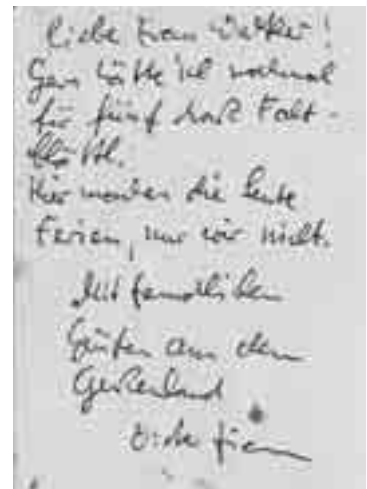 Liebe Frau
Gern hätte ich nochmal
für fünf Mark Falt-
blättl.
Hier machen die Leute
Ferien, nur wir nicht.
Mit freundlichen
Grüßen aus dem